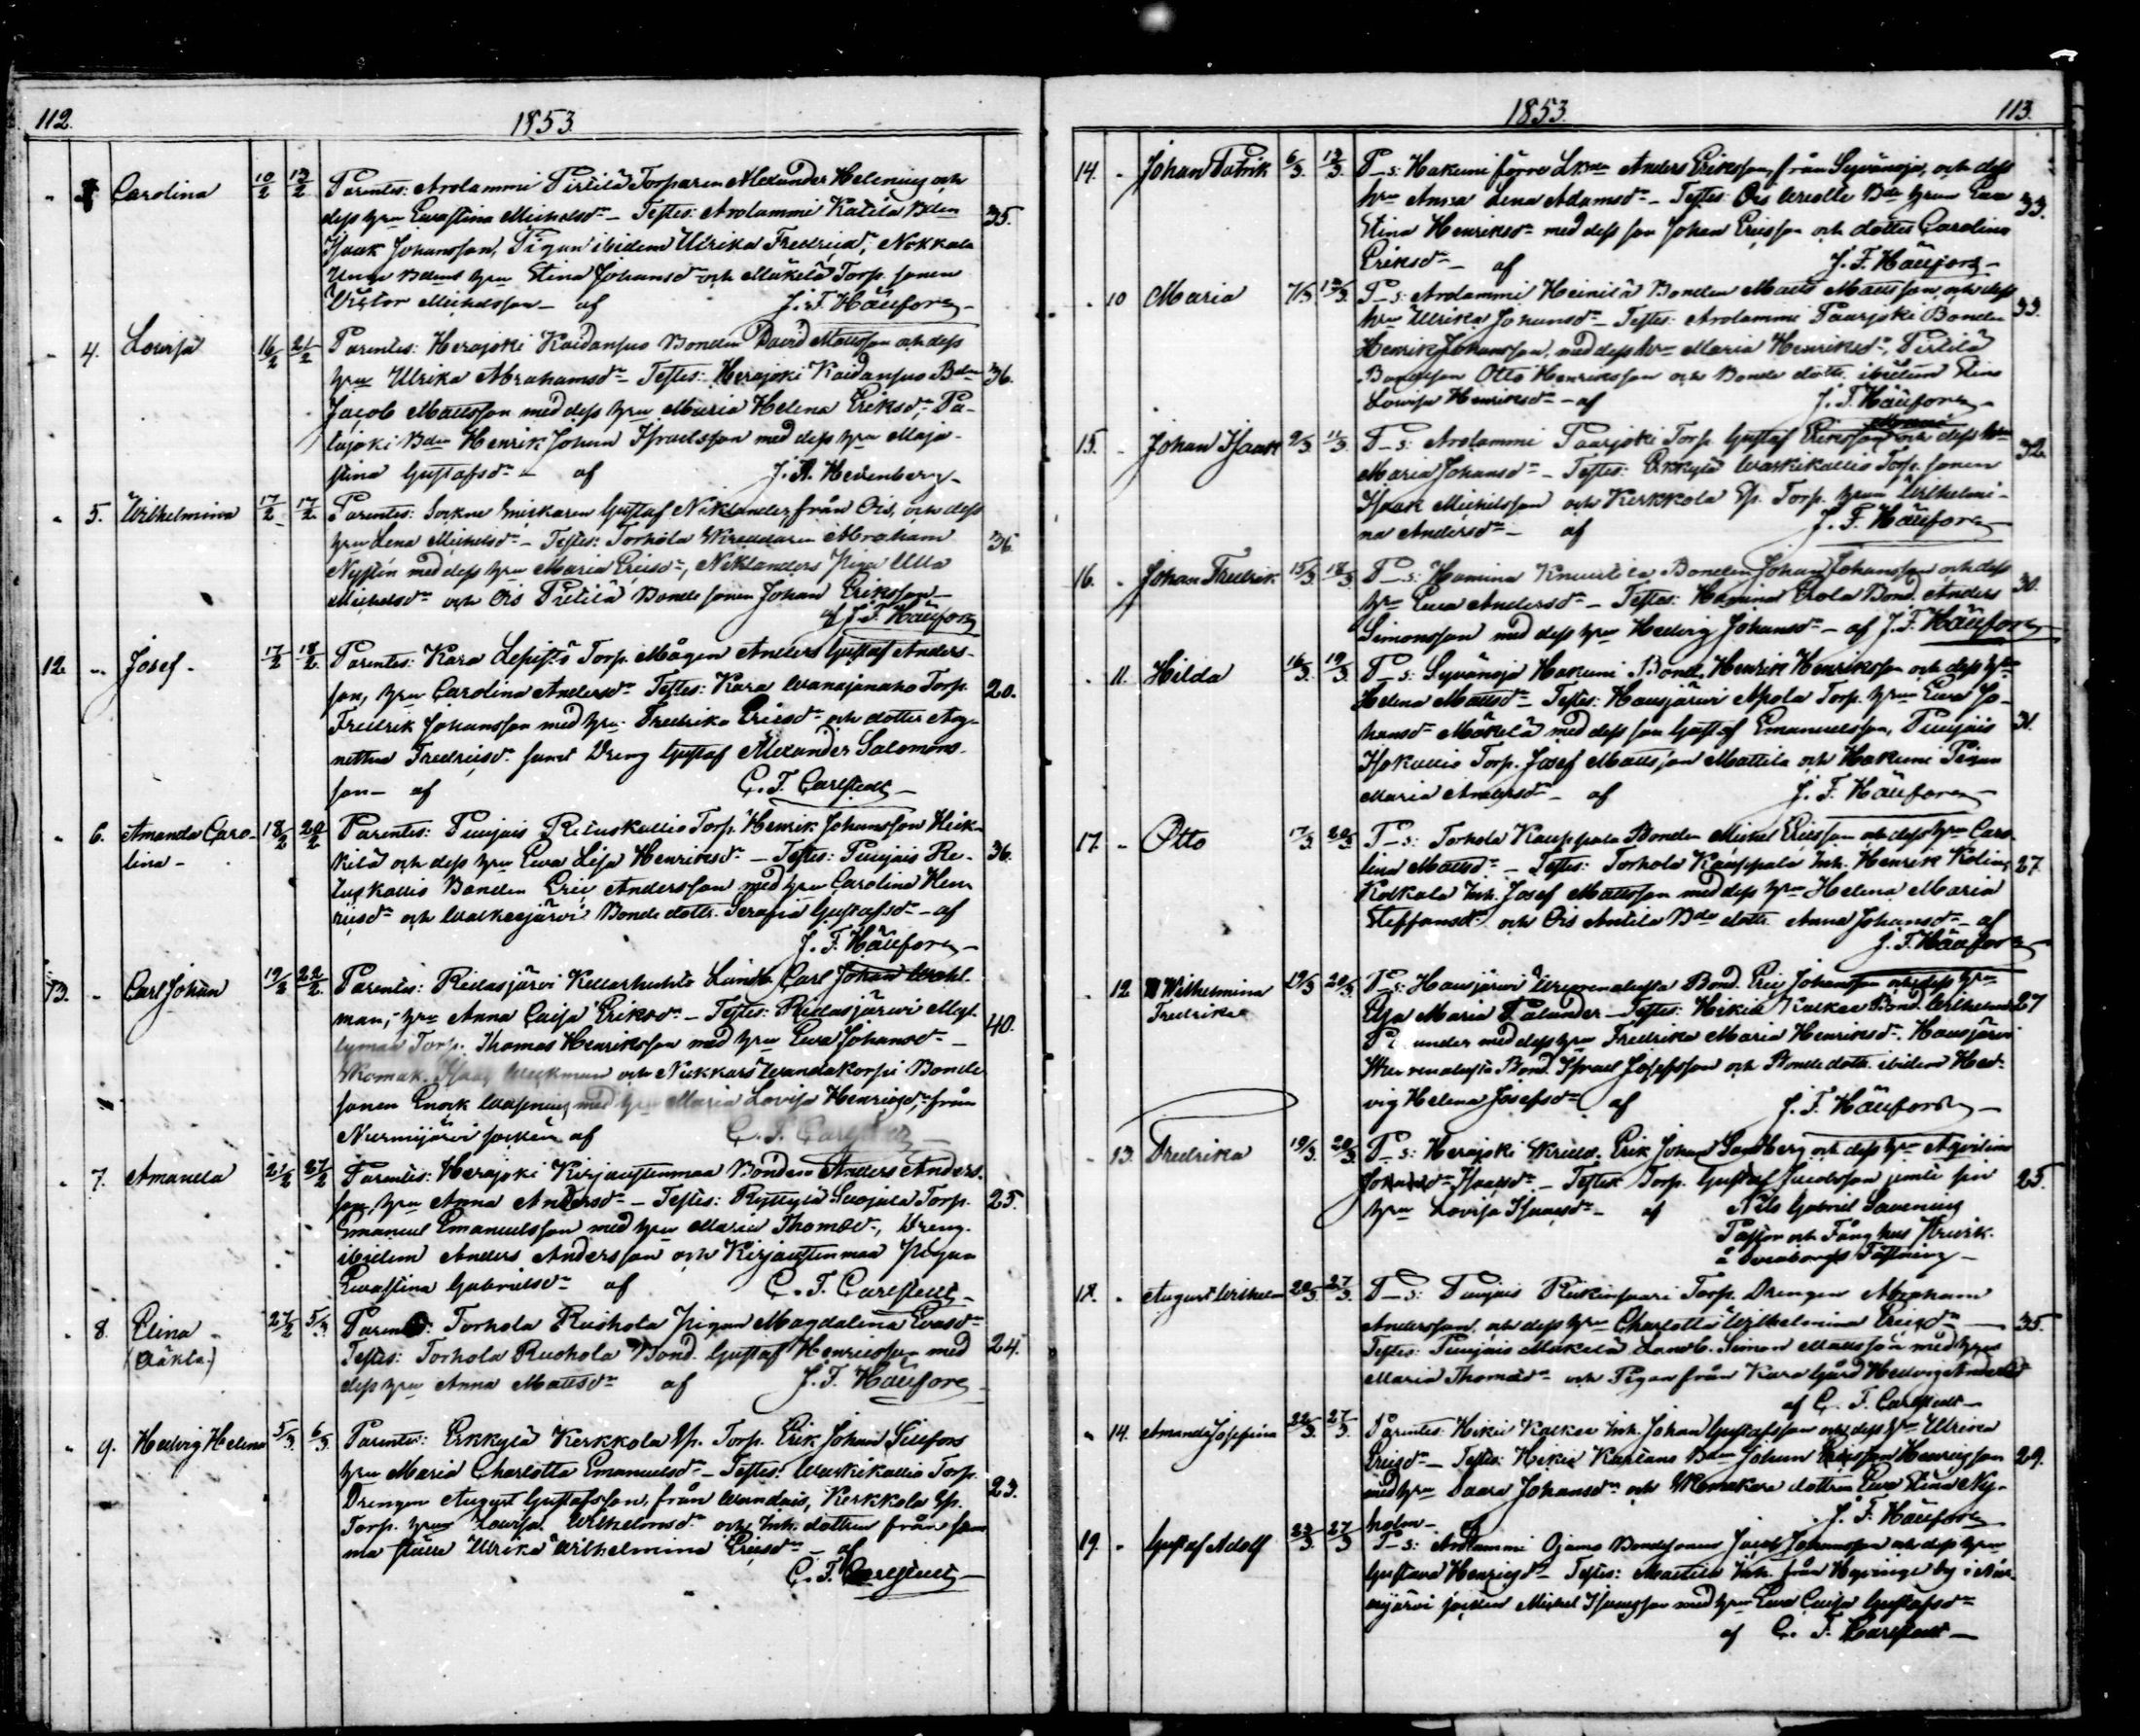 112.
1853.
3. Carolina 10/2 13/2 Parentes: Arolammi Pirtilä Torparen Alexander Helenius och
dess hru Ewastina Michelsdr – Testes: Arolammi Katila Bden 35.
Isaak Johansson, Pigan ibidem Ulrika Fredricsdr, Nokkala
Bdens hru Stina Johansdr och Mäkelä Torp. sonen
Victor Michelsson – af J. F. Häufors –
4. Lowisa 16/2 21/2 Parentes: Herajoki Kaidansuo Bonden David Mattsson och dess
hru Ulrika Abrahamsdr – Testes: Herajoki Kaidansuo Bden 36.
Jacob Mattsson med dess hru Maria Helena Eriksdr, Pa-
lajoki Bden Henrik Johan Israelsson med dess hru Maja-
stina Gustafsdr – af J. A. Hedenberg –
5. Wilhelmina 17/2 17/2 Parentes: Sockne Gustaf Niklander, från Ois, och dess
hru Lena Michelsdr – Testes: Torhola Skreddaren Abraham 36.
Nystén med dess hru Maria Ericsdr, Niklanders piga Ulla
Michelsdr och Ois Pirtilä Bonde sonen Johan Eriksson –
af J. F. Häufors
12. Josef – 17/2 18/2 Parentes: Kara Lepistö Torp. Mågen Anders Gustaf Anders-
son, hru Carolina Andersdr Testes: Kara Wanajanaho Torp. 20.
Fredrik Johansson med hru Fredrika Ericsdr och dotter Ag-
netha Fredricsdr samt Dreng Gustaf Alexander Salomons-
son – af C. F. Carlstedt –
6. Amanda Caro- 18/2 20/2 Parentes: Punjais Rituskallio Torp. Henrik Johansson Heik-
lina – kilä och dess hru Ewa Lisa Henriksdr – Testes: Punjais Re- 36.
tuskallio Bonden Eric Andersson med hru Carolina Hen-
ricsdr och Walkeajärvi Bonde dottr. Serafia Gustafsdr – af
J. F. Häufors –
13. Carl Johan 19/2 22/2 Parentes: Ridasjärvi Kellarhuhta Landb. Carl Johan Wahl-
man, hru Anna Caisa Eriksdr – Testes: Ridasjärvi Myl- 40.
lymaa Torp. Thomas Henriksson med hru Ewa Johansdr –
Skomak. Isaac och Nukkars Wandakorpi Bonde
sonen Enock med hru Maria Lovisa Henricsdr, från
Nurmijärvi socken af C. F. Carlstedt –
7. Amanda 21/2 27/2 Parentes: Herajoki Kirjaustenmaa Bonden Anders Anders-
son, hru Anna Andersdr – Testes: Ryttylä Suojala Torp. 25.
Emanuel Emanuelsson med hru Maria Thomædr, Dreng.
ibidem Anders Andersson och Kirjaustenmaa pigan
Ewastina Gabrielsdr af C. F. Carlstedt –
8. Elina – 27/2 5/3 Parentes: Torhola Ruohola pigan Magdalina Evasdr
(Oäkta.) Testes: Torhola Ruohola Bond. Gustaf Henricsson med 24.
dess hru Anna Mattsdr af J. F. Häufors
9. Hedvig Helena 5/3 6/3 Parentes: Erkkylä Kerkkola Sp. Torp. Erik Johan Silfors
hru Maria Charlotta Emanuelsdr – Testes: Waskikallio Torp.
Drengen August Gustafsson, från Wandais, Kerkkola Sp. 23.
Torp. hru Lowisa Wilhelmsdr och Inh. dottren från sam-
ma ställe Ulrika Wilhelmina Ericsdr – af
C. F. Carlstedt –
1853.
113.
14. Johan Patrik 6/3 13/3 P–s: Hakumi förre Lbden Anders Eriksson, från Syvänoja, och dess
hru Anna Lena Adamsdr – Testes: Ois Bde hrun Ewa 33.
Stina Henriksdr med dess son Johan Ericsson och dotter Carolina
Eriksdr – af J. F. Häufors –
10 Maria 7/3 13/3 P–s: Arolammi Heinilä Bonden Matts Mattsson, och dess
hru Ulrika Johansdr – Testes: Arolammi Paarjoki Bonden 33.
Henrik Johansson, med dess hru Maria Henriksdr, Pirtilä
Bondeson Otto Henriksson och Bonde dottr. ibidem Stina
Lowisa Henriksdr – af J. F. Häufors –
15. Johan Isaak 9/3 11/3 P–s: Arolammi Paarjoki Torp. Gustaf Eriksson och dess hru 32.
Maria Johansdr – Testes: Erkkylä Waskikallio Torp. sonen
Isaak Michelsson och Kerkkola Sp. Torp. hrun Wilhelmi-
na Andersdr – af J. F. Häufors –
16. Johan Fredrik 15/3 18/3 P–s: Hamina Knuutila Bonden Johan Johansson och dess
hru Ewa Andersdr – Testes: Hamina Erola Bond. Anders 30.
Simonsson med dess hru Hedvig Johansdr – af J. F. Häufors
11. Hilda 16/3 19/3 P–s: Syvänoja Hakumi Bond. Henrik Henriksson och dess hru
Helena Mattsdr – Testes: Hausjärvi Apola Torp. hru Ewa Jo-
hansdr Mäkelä med dess son Gustaf Emanuelsson, Punjais 31.
Isokallio Torp. Josef Mattsson Mattila och Hakumi Pigan
Maria Andersdr – af J. F. Häufors –
17. Otto 17/3 20/3 P–s: Torhola Kauppala Bonden Michel Ericsson och dess hru Caro-
lina Mattsdr – Testes: Torhola Kauppala Inh. Henrik Kolin, 27.
Kolkala Inh. Josef Mattsson med dess hru Helena Maria
Steffansdr och Ois Antila Bde dottr. Anna Johansdr – af
J. F. Häufors
12. Wilhelmina 19/3 20/3 P–s: Hausjärvi Bond. Eric Johansson och dess hru
Fredrika Elsa Maria Palander – Testes: Hikiä Kalkea Bond. Wilhelm 27
med dess hru Fredrika Maria Henriksdr, Hausjärvi
Bond. Israel Josefsson och Bonde dottr. ibidem Hed-
vig Helena Josefsdr af J. F. Häufors –
13. Fredrika 19/3 20/3 P–s: Herajoki Skredd. Erik Johan Sandberg och dess hru
Isaacsdr – Testes: Torp. Gustaf jemte sin 25.
hru Lovisa Isaacsdr – af Nils Gabriel Savenius
Pastor och Fånghus
å Sveaborgs Fästning –
18. August Wilhelm 20/3 27/3 P–s: Punjais Torp. Drengen Abraham
Andersson, och dess hru Charlotta Wilhelmina Ericsdr – 35.
Testes: Punjais Mäkelä Landb. Simon Mattsson med hrun
Maria Thomædr och Pigan från Kara Gård Hedvig Andersdr
af C. F. Carlstedt –
14. Amanda Josefina 22/3 27/3 Parentes: Hikiä Kalkea Inh. Johan Gustafsson och dess hru Ulrica
Ericsdr – Testes: Hikiä Bden Johan Henricsson 29.
med hru Saara Johansdr och Skomakare dottren Ewa Stina Ny-
holm – af J. F. Häufors
19. Gustaf Adolf 23/3 27/3 P–s: Arolammi Ojams Bondesonen Jacob Johansson och dess hru
Gustava Henricsdr – Testes: Mattila Inh. från Hyvinge by i Nur-
mijärvi socken Michel Isaacsson med hru Ewa Caisa Gustafsdr
af C. F. Carlstedt –